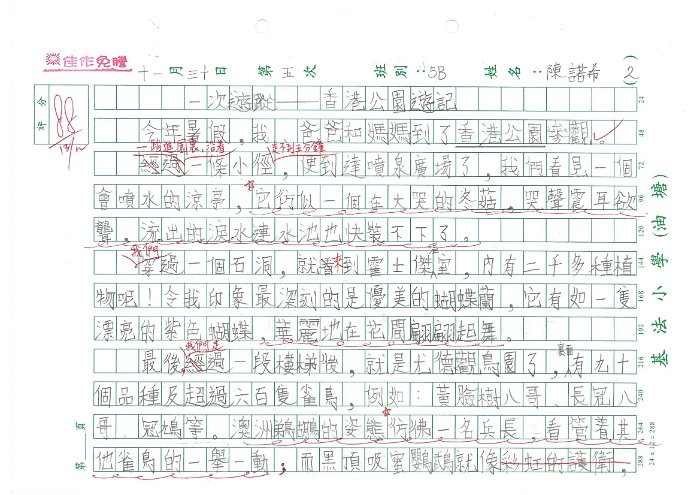 佳作免謄
十一月三十日 第五次 班別：5B 姓名：陳諾希 (2)
評分 88 13/12
一次遊蹤——香港公園遊記
今年暑假，我、爸爸和媽媽到了香港公園參觀。
一踏進園裏，沿着 走不到五分鐘
經過一條小徑，便到達噴泉廣場了，我們看見一個
會噴水的涼亭，它仿似一個在大哭的冬菇，哭聲震耳欲
聾，流出的淚水連水池也快裝不下了。
我們
穿過一個石洞，就來到霍士傑溫室，內有二千多種植
物呢！令我印象最深刻的是優美的蝴蝶蘭，它有如一隻
漂亮的紫色蝴蝶，華麗地在花間翩翩起舞。
我們走 裏面
最後經過一段樓梯後，就是尤德觀鳥園了，有九十
個品種及超過六百隻雀鳥，例如：黃胸樹八哥、長冠八
哥、冠鳩等。澳洲鵜鶘的姿態仿佛一名兵長，看管着其
他雀鳥的一舉一動；而黑頂吸蜜鸚鵡就像彩虹的護衛，
第 頁
基法小學(油塘)
24
48
72
96
120
144
168
192
216
240
264
288
24 x 12 = 288